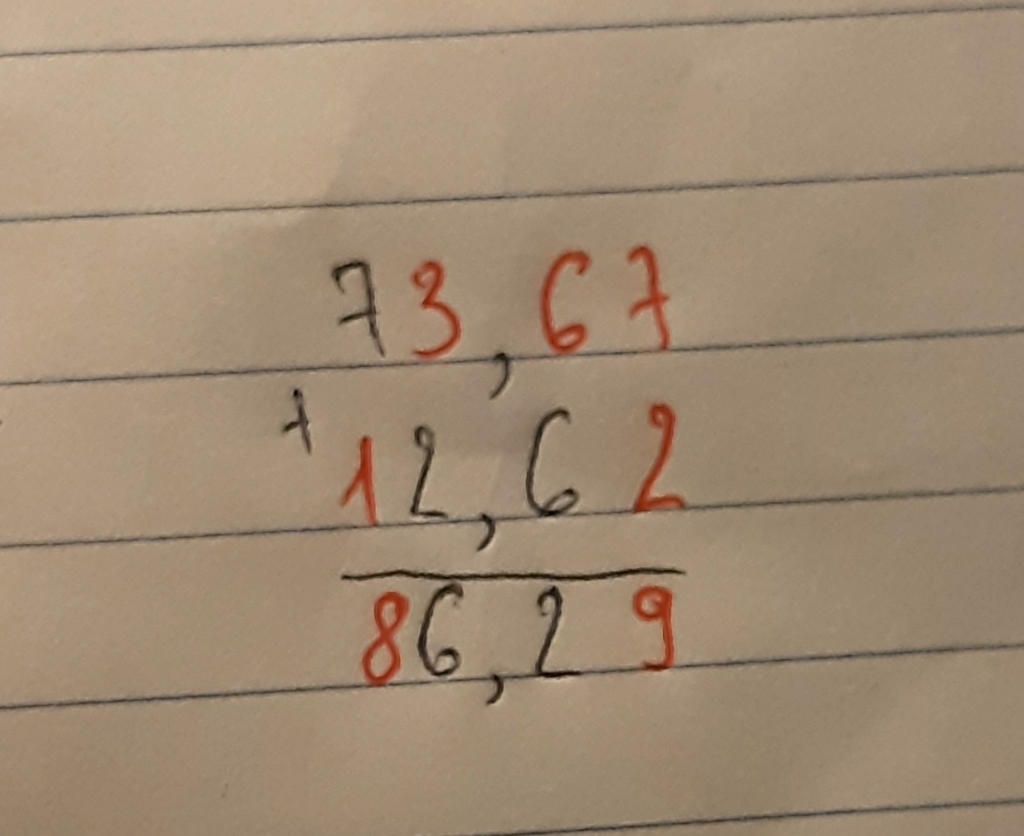 73,67
+12,62
86,29